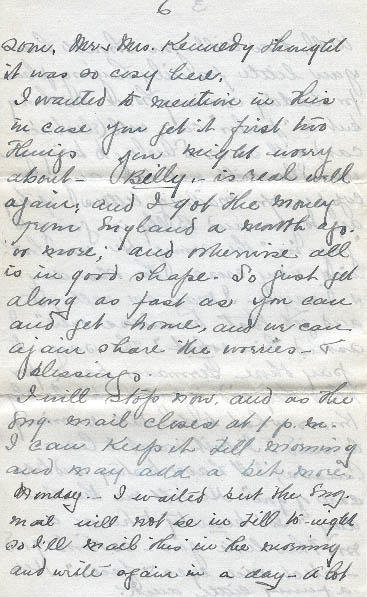 6
soon. Mr & Mrs. Kennedy thought
it was so cosy here.
I wanted to mention in this
in case you get it first two
things you might worry
about - Kelly, - is real well
again; and I got the money
from England a month ago.
or more; and otherwise all
is in good shape. So just get
along as fast as you can
and get home, and we can
again share the worries - &
blessings.
I will stop now, and as the
Eng. mail closes at 1 p.m.
I can keep it till morning
and may add a bit more.
Monday - I waited but the Eng.
mail will not be in till to-night
so I'll mail this in the morning
and write again in a day - A lot